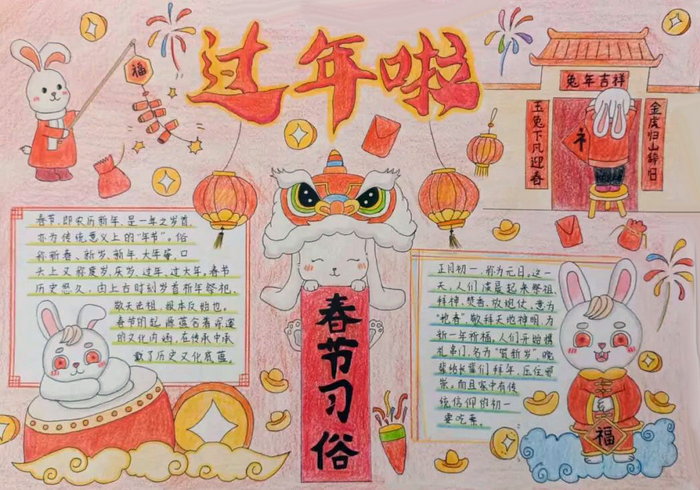 过年啦
福
兔年吉祥
玉兔下凡迎春
金虎归山辞旧
春节,即农历新年,是一年之岁首,
亦为传统意义上的“年节”。俗
称新春、新岁、新年、大年等,口
头上又称度岁、庆岁、过年、过大年。春节
历史悠久,由上古时刻岁首新年祭祀
敬天法祖、报本反始也。
春节的起源蕴含着深邃
的文化内涵,在传承中承
载了历史文化底蕴
春节习俗
正月初一,称为元日,这一
天,人们凌晨起来祭祖
拜神,焚香、放炮仗,意为
“抢春”敬拜天地神明,为
新一年祈福。人们开始携
礼串们,名为“贺新岁”,晚
辈给长辈们拜年,压住邪
祟。而且家中有传
统信仰的初一
要吃素。
福